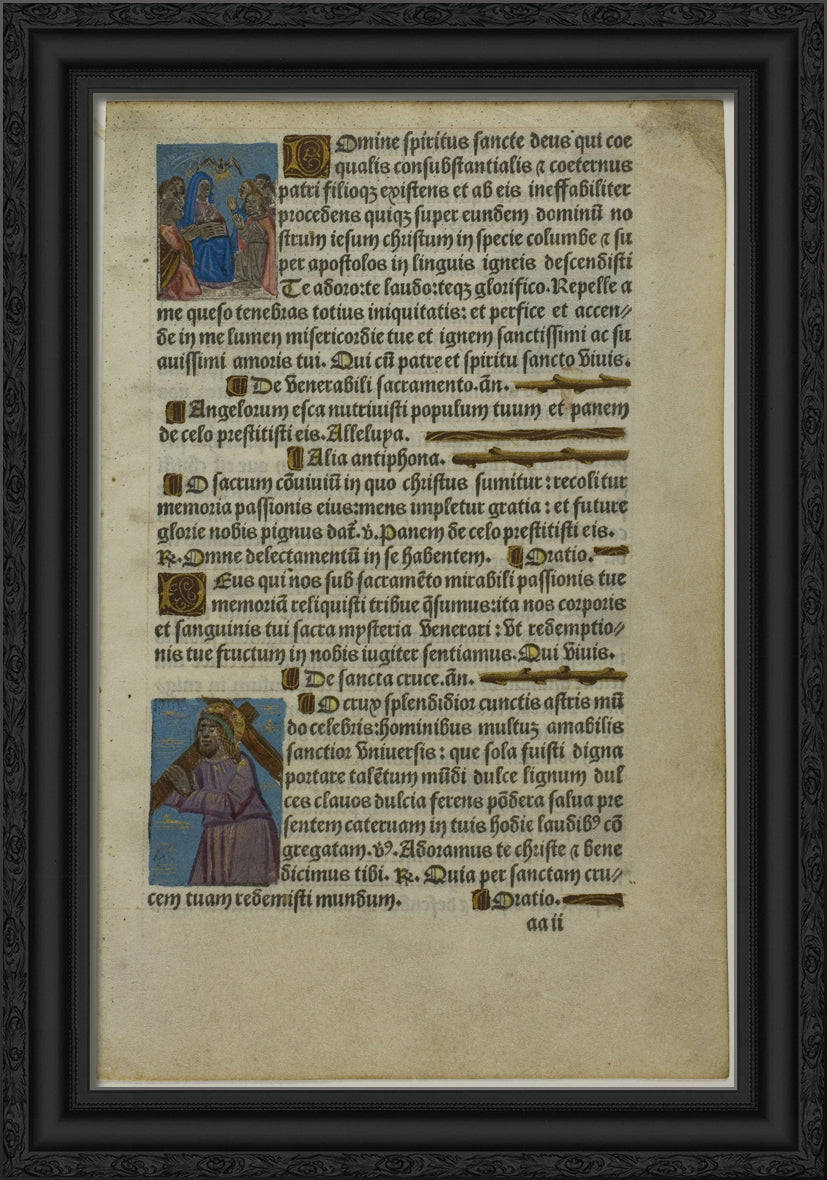 Domine spiritus sancte deus qui coe
qualis consubstantialis ⁊ coeternus
patri filioqꝫ existens et ab eis ineffabiliter
procedens quiqꝫ super eundem dominū no
strum iesum christum in specie columbe ⁊ su
per apostolos in linguis igneis descendisti
Te adoro:te laudo:teqꝫ glorifico. Repelle a
me queso tenebras totius iniquitatis: et perfice et accen⸗
de in me lumen misericordie tue et ignem sanctissimi ac su
auissimi amoris tui. Qui cū patre et spiritu sancto viuis.
De venerabili sacramento. añ.
Angelorum esca nutriuisti populum tuum et panem
de celo prestitisti eis. Alleluya.
Alia antiphona.
O sacrum cōuiuiū in quo christus sumitur: recolitur
memoria passionis eius:mens impletur gratia: et future
glorie nobis pignus dat̄. v̓. Panem de celo prestitisti eis.
℞. Omne delectamentū in se habentem. Oratio.
DEus qui nos sub sacramēto mirabili passionis tue
memoriā reliquisti tribue q̄sumus:ita nos corporis
et sanguinis tui sacra mysteria venerari: vt redemptio⸗
nis tue fructum in nobis iugiter sentiamus. Qui viuis.
De sancta cruce. añ.
O crux splendidior cunctis astris mū
do celebris:hominibus multuꝫ amabilis
sanctior vniuersis: que sola fuisti digna
portare talētum mūdi dulce lignum dul
ces clauos dulcia ferens pōdera salua pre
sentem cateruam in tuis hodie laudibꝰ cō
gregatam. vꝰ. Adoramus te christe ⁊ bene
dicimus tibi. ℞. Quia per sanctam cru⸗
cem tuam redemisti mundum. Oratio.
aa ii